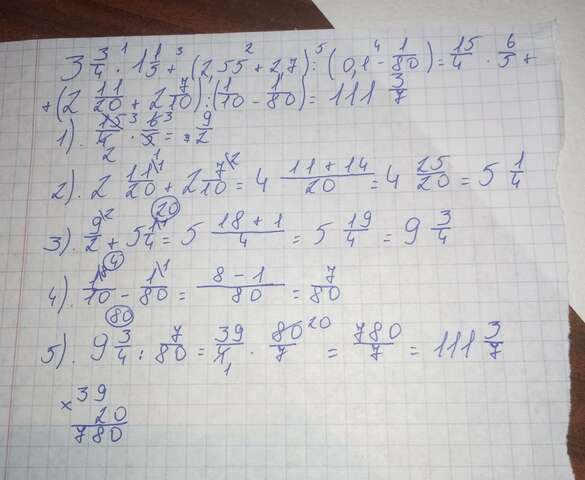 3 3/4 · 1 1/5 + (2,55 + 2,7) : (0,1 - 1/80) = 15/4 · 6/5 +
+ (2 11/20 + 2 7/10) : (1/10 - 1/80) = 111 3/7
1). 15³/4₂ · 6³/5 = 9/2
2). 2 11\¹/20 + 2 7\²/10 = 4 11 + 14/20 = 4 25/20 = 5 1/4
3). 9\²/2 + 5 1\¹/4 = 5 18 + 1/4 = 5 19/4 = 9 3/4
4). 1\⁸/10 - 1\¹/80 = 8 - 1/80 = 7/80
5). 9 3/4 : 7/80 = 39/4₁ · 80²⁰/7 = 780/7 = 111 3/7
× 39
20
780